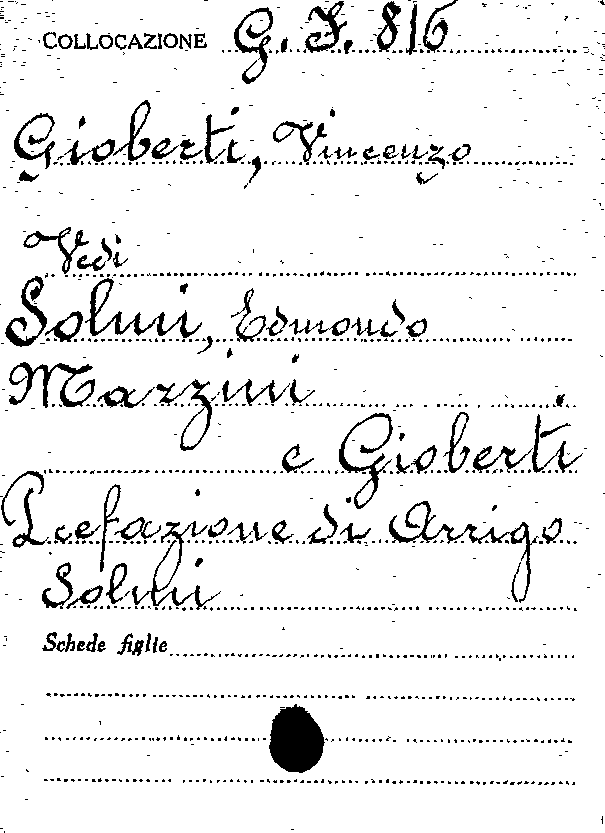 COLLOCAZIONE G. F. 816
Gioberti, Vincenzo
Vedi
Solmi, Edmondo
Mazzini
e Gioberti
Prefazione di Arrigo
Solmi
Schede figlie